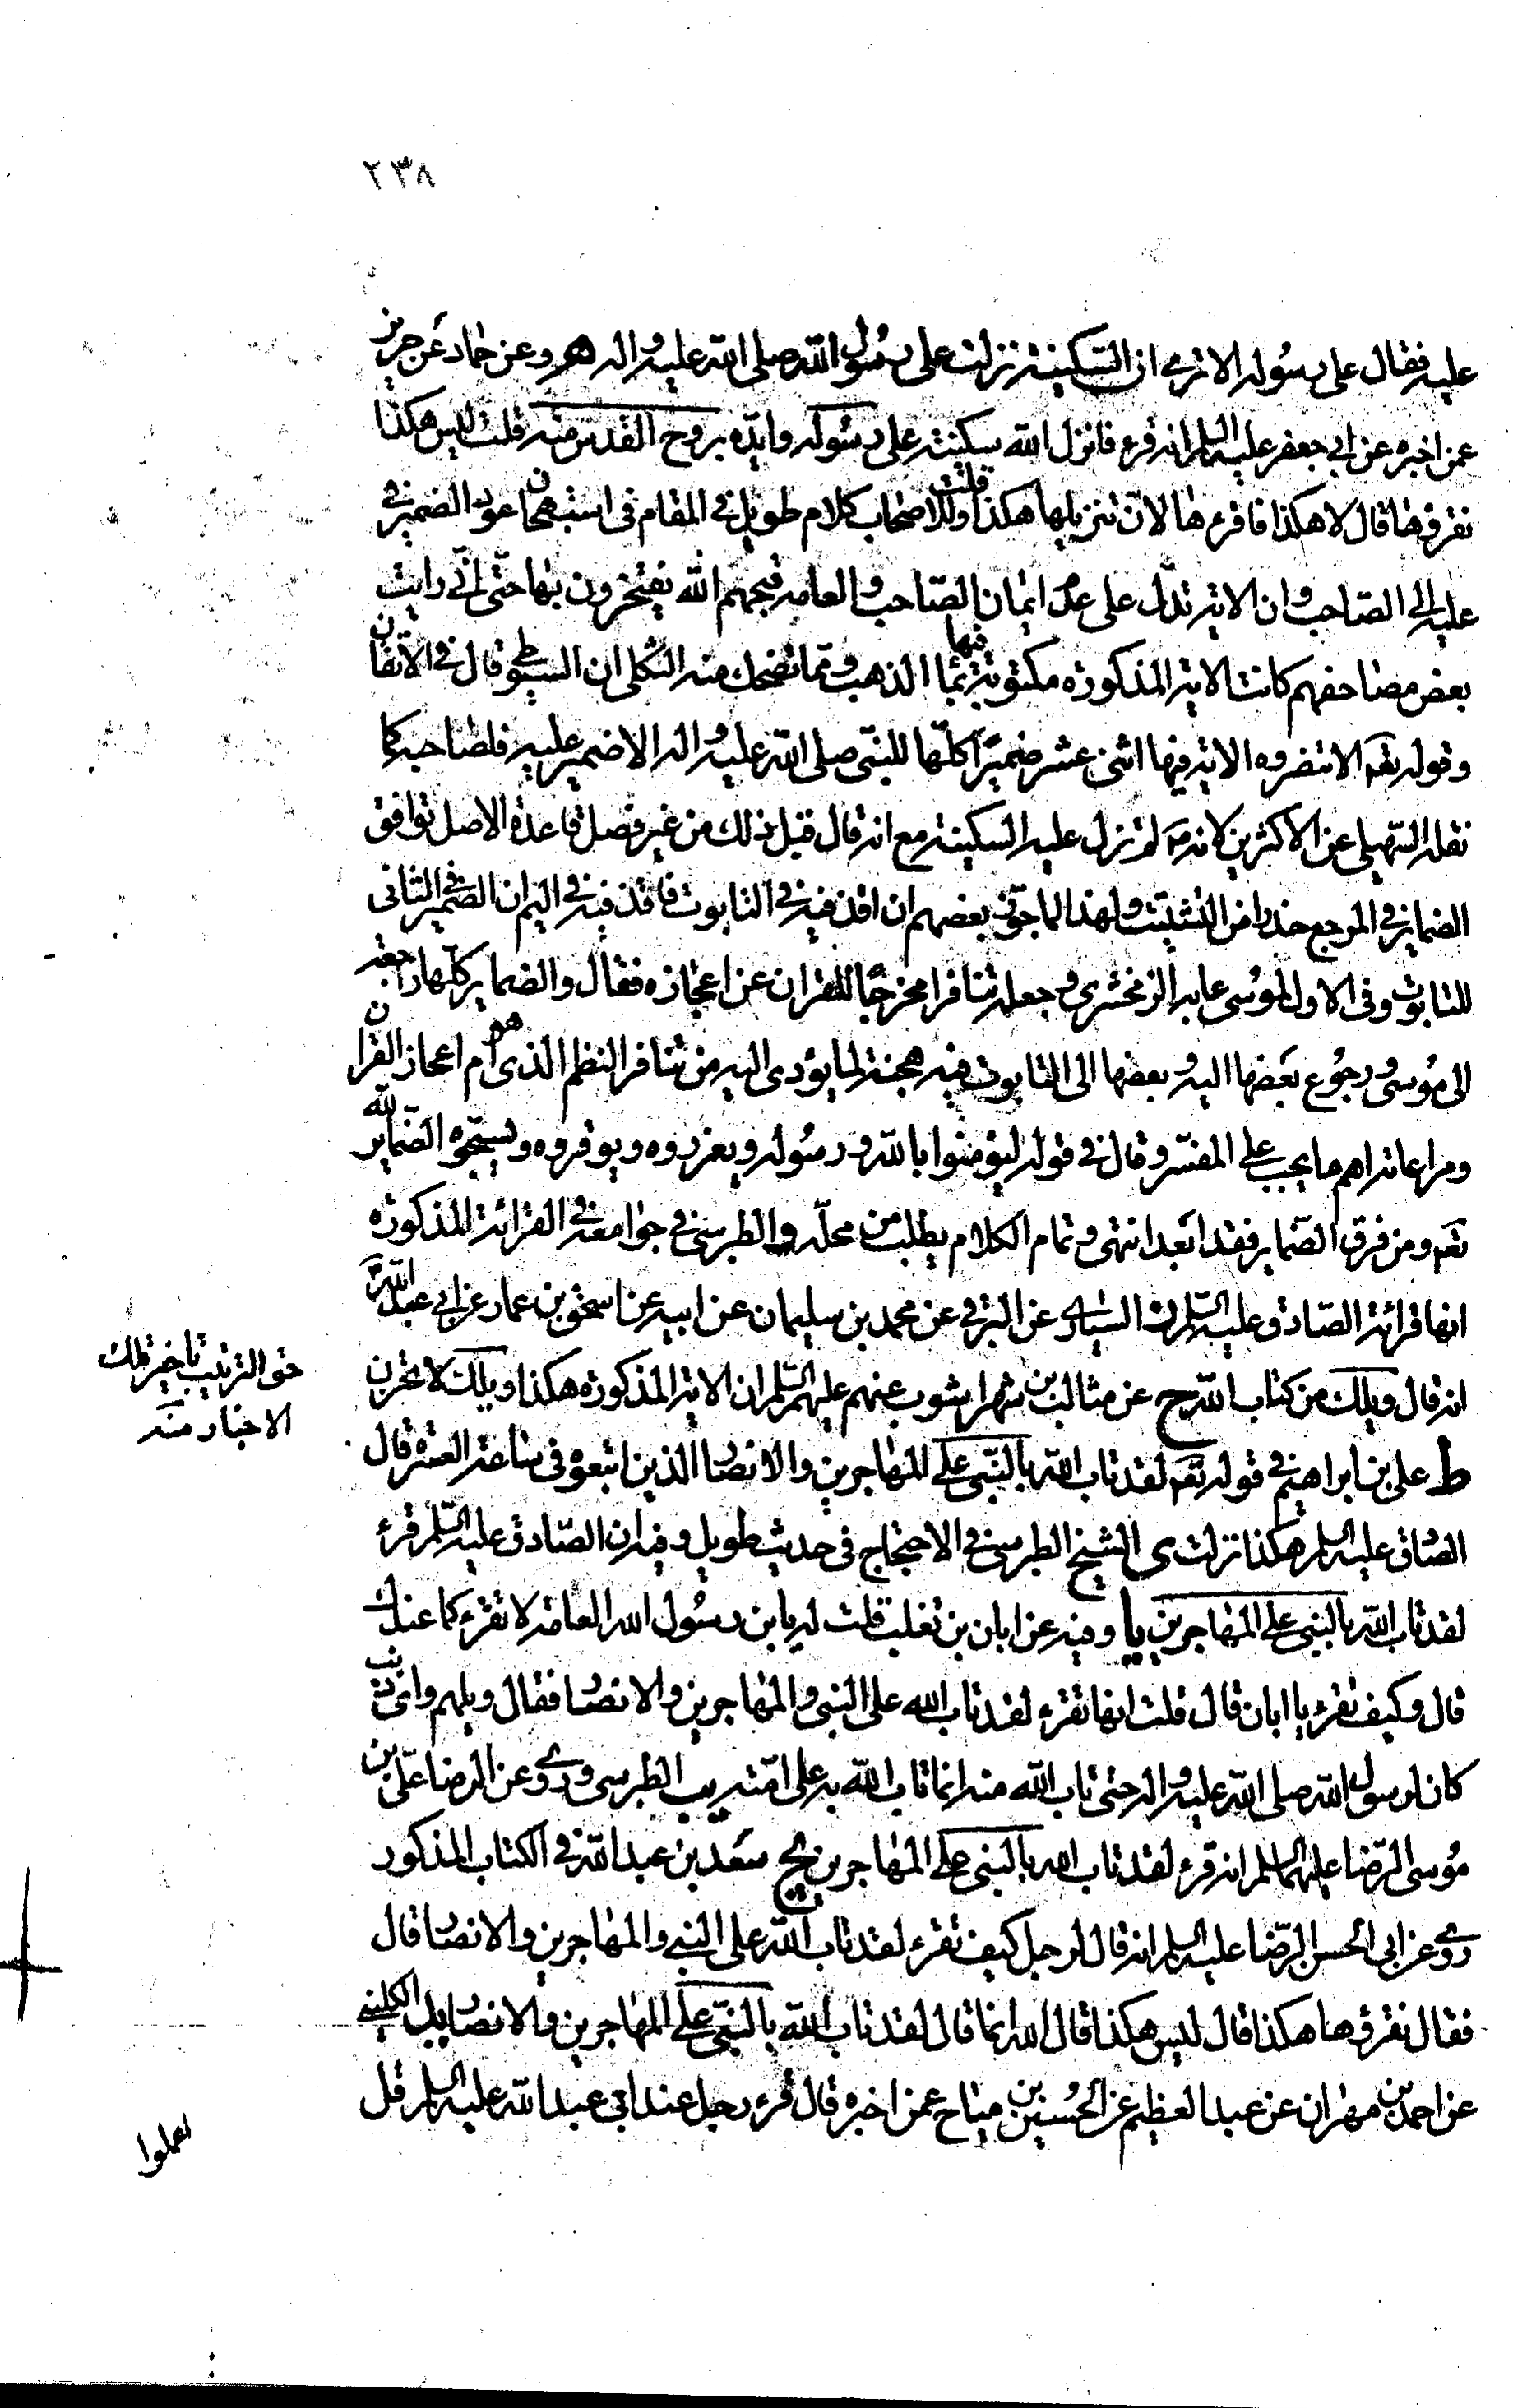 ٢٣٨
عليه فقال على رسوله الا ترى ان السكينة نزلت على رسول الله صلى الله عليه واله هو وعن حماد عن حريز
عمن اخبره عن ابي جعفر عليه السلم انه قرء فانزل الله سكينته على رسوله وايده بروح القدس منه قلت ليس هكذا
نقرؤها قال لا هكذا فاقرءها لان تنزيلها هكذا قلت وللاصحاب كلام طويل في المقام في استهجان عود الضمير في
عليه الى الصاحب وان الاية تدل على عدم ايمان الصاحب والعامة قبحهم الله يفتخرون بها حتى اني رايت
بعض مصاحفهم كانت الاية المذكورة مكتوبة فيها بماء الذهب ومما تضحك منه الثكلى ان السيوطي قال في الاتقان
وقوله تعه الا تنصروه الاية فيها اثنى عشر ضميرا كلها للنبي صلى الله عليه واله الا ضمير عليه فلصاحبه كما
نقله السهيلي عن الاكثرين لانه ص لم تزل عليه السكينة مع انه قال قبل ذلك من غير فصل قاعدة الاصل توافق
الضماير في المرجع حذرا من التشتيت ولهذا لما جوز بعضهم ان اقذفيه في التابوت فاقذفيه في اليم ان الضمير الثاني
للتابوت وفي الاول لموسى عابه الزمخشري وجعله تنافرا مخرجا للقران عن اعجازه فقال والضماير كلها راجعة
الى موسى ورجوع بعضها اليه وبعضها الى التابوت فيه هجنة لما يؤدى اليه من تنافر النظم الذى هو ام اعجاز القران
ومراعاته اهم ما يجب على المفسر وقال في قوله ليؤمنوا بالله ورسوله ويعزروه ويوقروه ويسبحوه الضماير لله
تعه ومن فرق الضماير فقد ابعد انتهى وتمام الكلام يطلب من محله والطبرسي في جوامعه في القرائة المذكورة
انها قرائة الصادق عليه السلم السياري عن البرقي عن محمد بن سليمان عن ابيه عن اسحق بن عمار عن ابي عبد الله ع
انه قال ويلك من كتاب الله ح عن مثالب بن شهراشوب عنهم عليهم السلم ان الاية المذكورة هكذا ويلك لا تحزن
ط على بن ابراهيم في قوله تعه لقد تاب الله بالنبي على المهاجرين والانصار الذين اتبعوه في ساعة العسرة قال
الصادق عليه السلم هكذا نزلت ى الشيخ الطبرسي في الاحتجاج في حديث طويل وفيه ان الصادق عليه السلم قرء
لقد تاب الله بالنبي على المهاجرين يا وفيه عن ابان بن تغلب قلت له يا بن رسول الله العامة لا تقرء كما عندك
قال وكيف تقرء يا ابان قال قلت انها تقرء لقد تاب الله على النبي والمهاجرين والانصار فقال ويلهم واى ذنب
كان لرسول الله صلى الله عليه واله حتى تاب الله منه انما تاب الله به على امته يب الطبرسي وروى عن الرضا على بن
موسى الرضا عليهما السلم انه قرء لقد تاب الله بالنبي على المهاجرين يج سعد بن عبد الله في الكتاب المذكور
روى عن ابي الحسن الرضا عليه السلم انه قال لرجل كيف تقرء لقد تاب الله على النبي والمهاجرين والانصار قال
فقال نقرؤها هكذا قال ليس هكذا قال الله انما قال لقد تاب الله بالنبي على المهاجرين والانصار يد الكليني
عن احمد بن مهران عن عبد العظيم عن الحسين بن مياح عمن اخبره قال قرء رجل عند ابي عبد الله عليه السلم قل
حق الترتيب تاخير تلك
الاخبار منه
اعملوا